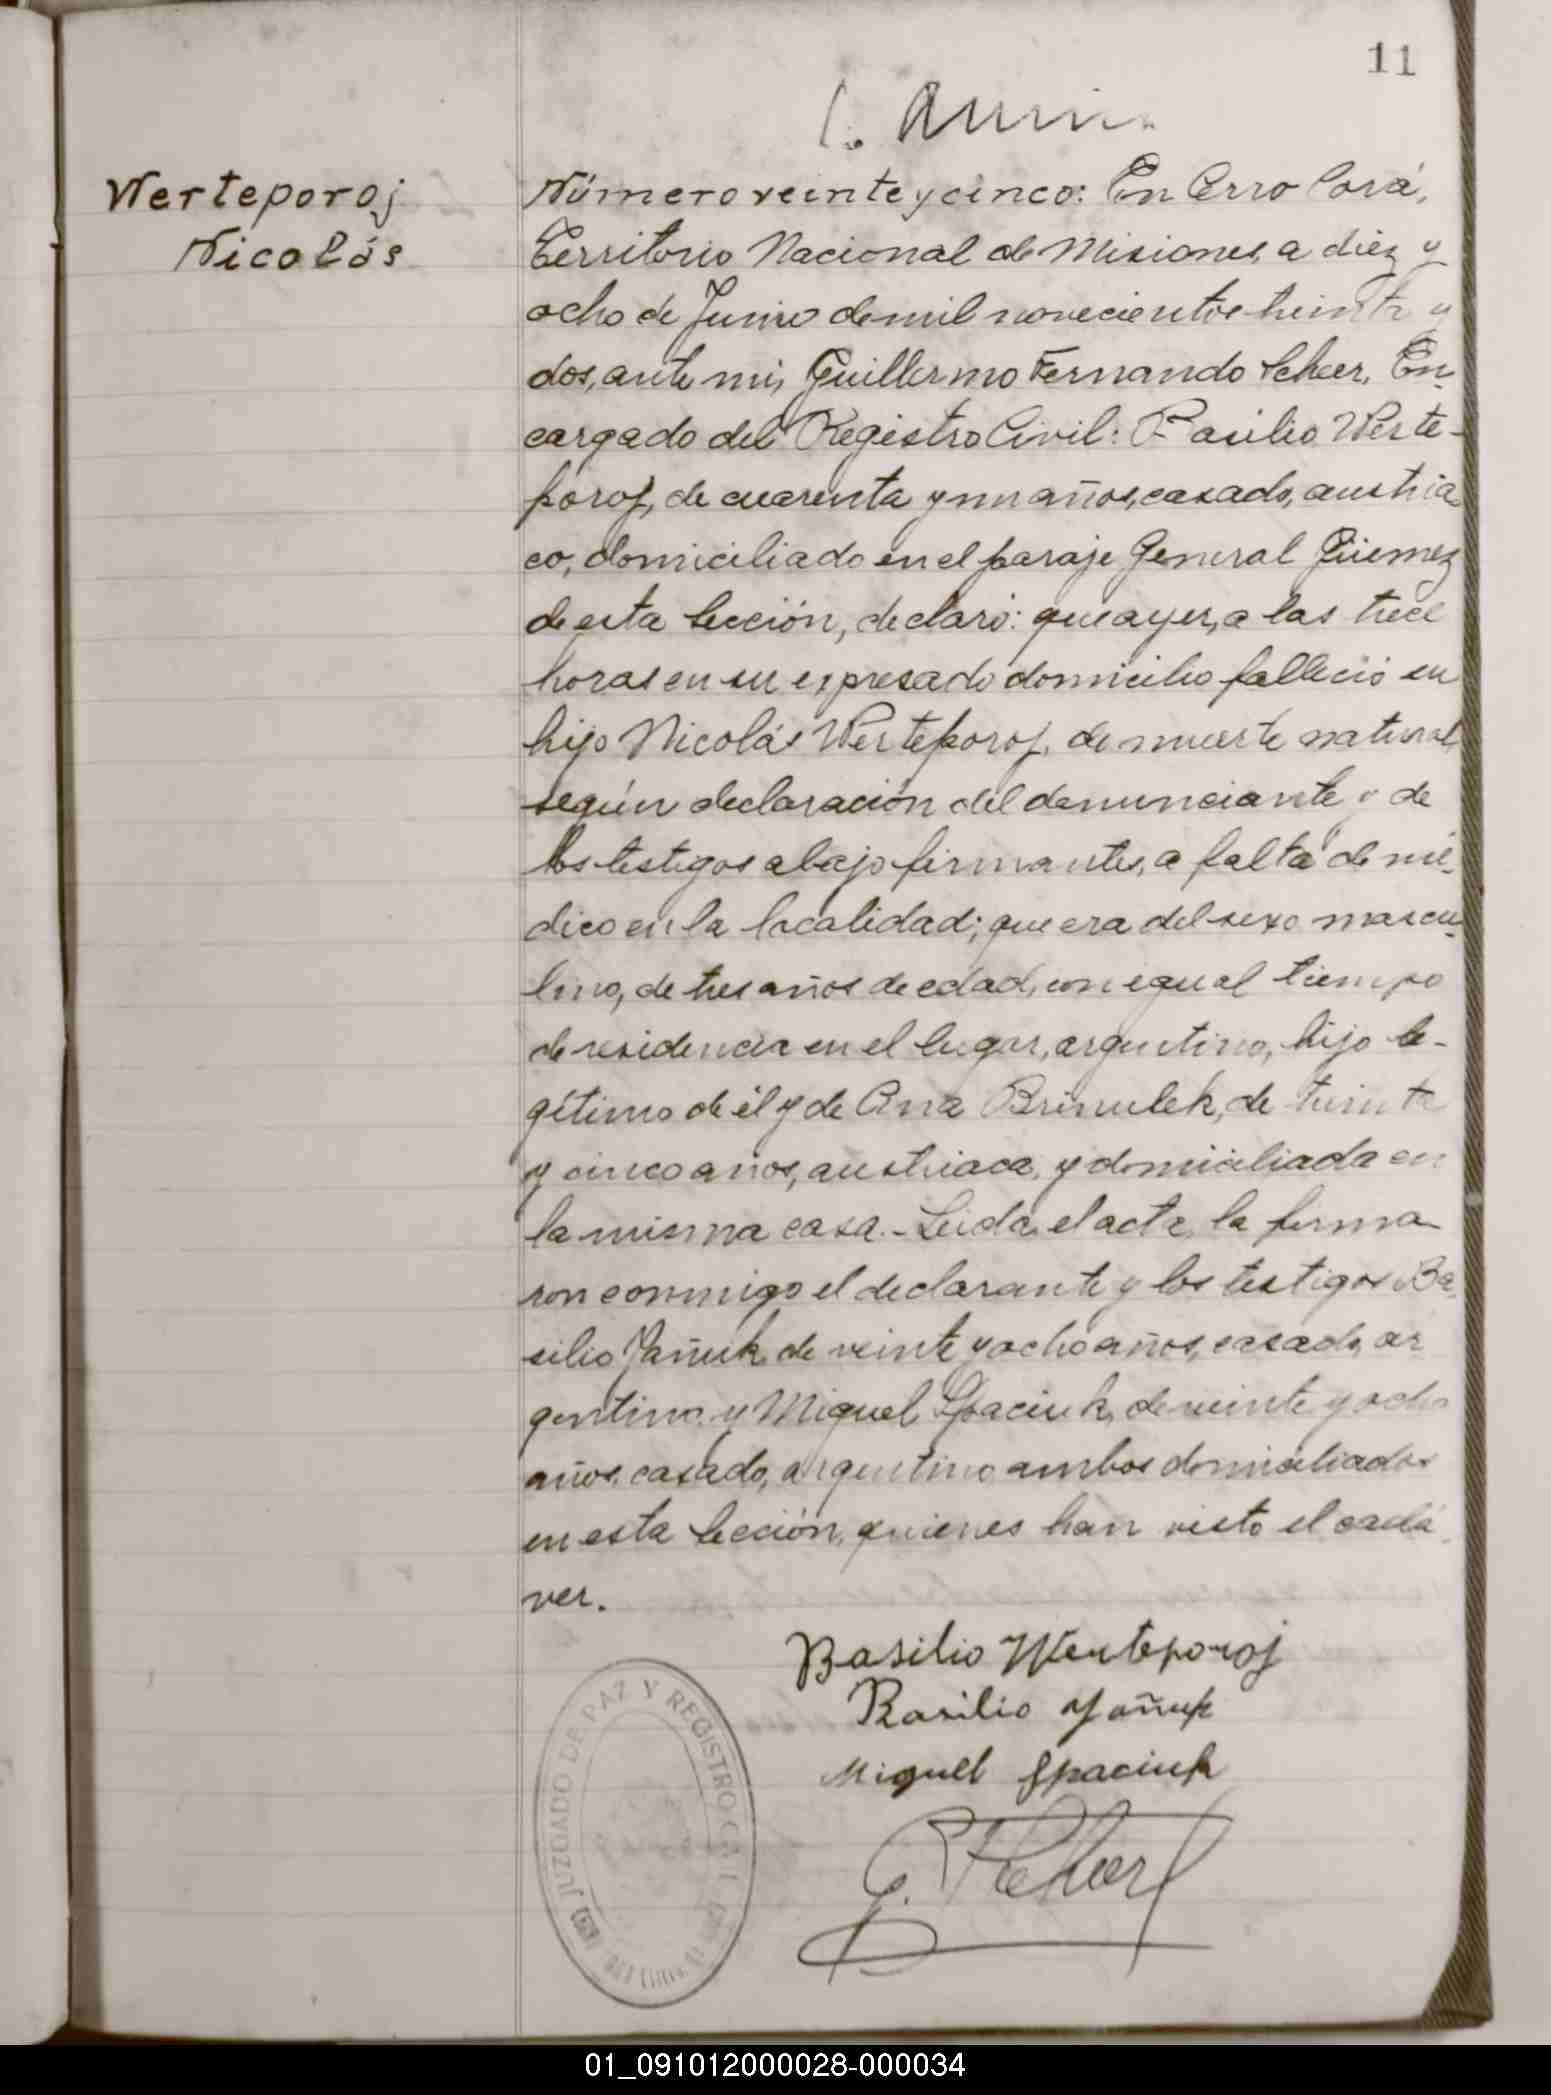 11
Werteporoj
Nicolás
Número veinte y cinco: En Cerro Corá,
Territorio Nacional de Misiones, a diez y
ocho de Junio de mil novecientos treinta y
dos, ante mí, Guillermo Fernando Scheer, En-
cargado del Registro Civil: Basilio Werte-
poroj, de cuarenta y un años, casado, austria
co, domiciliado en el paraje General Güemez
de esta Sección, declaró: que ayer, a las trece
horas en su expresado domicilio falleció su
hijo Nicolás Werteporoj, de muerte natural,
según declaración del denunciante y de
los testigos abajo firmantes, a falta de mé-
dico en la localidad; que era del sexo mascu-
lino, de tres años de edad, con igual tiempo
de residencia en el lugar, argentino, hijo le-
gítimo de él y de Ana Brinulek, de treinta
y cinco años, austriaca, y domiciliada en
la misma casa.- Leida el acta, la firma-
ron conmigo el declarante y los testigos Ba-
silio Yañuk, de veinte y ocho años, casado, ar
gentino y Miguel Spaciuk, de veinte y ocho
años, casado, argentino ambos domiciliados
en esta Sección, quienes han visto el cadá-
ver.
Basilio Werteporoj
Basilio Yañuk
Miguel Spaciuk
G. F Scheer
JUZGADO DE PAZ Y REGISTRO CIVIL
01_091012000028-000034